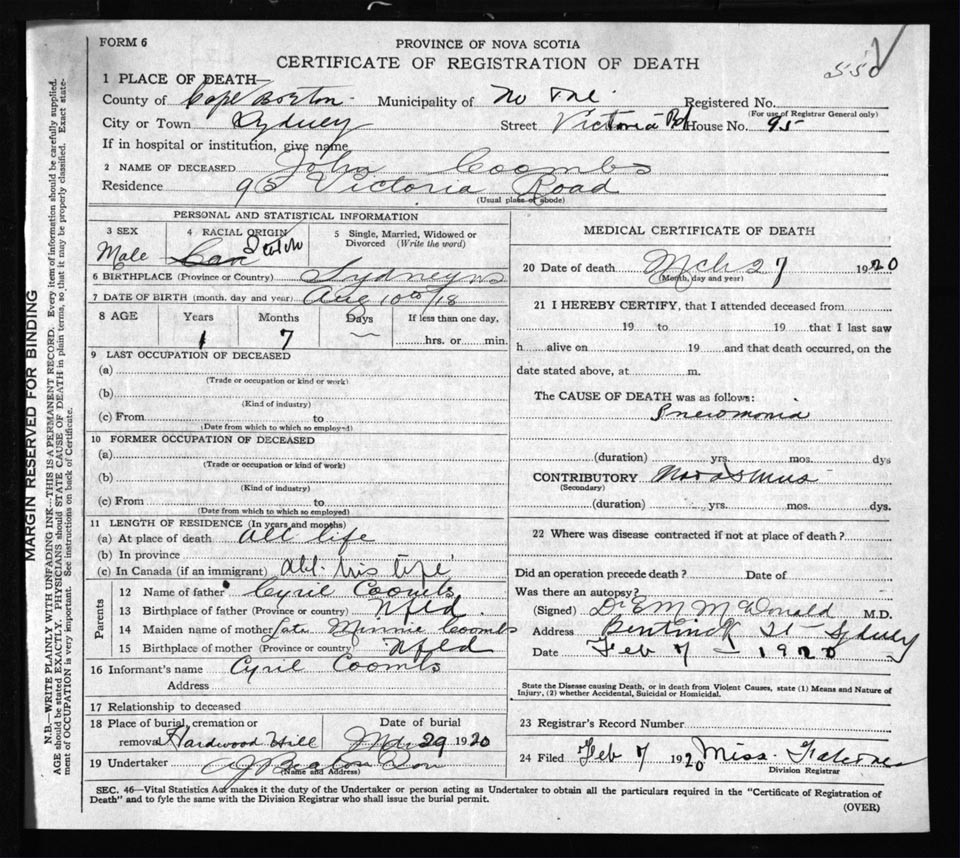 FORM 6
PROVINCE OF NOVA SCOTIA
CERTIFICATE OF REGISTRATION OF DEATH
550
1 PLACE OF DEATH—
County of Cape Breton Municipality of Registered No.
(For use of Registrar General only)
City or Town Sydney Street Victoria Rd House No. 95
If in hospital or institution, give name
2 NAME OF DECEASED John Coombs
Residence 95 Victoria Road
(Usual place of abode)
PERSONAL AND STATISTICAL INFORMATION
3 SEX
Male
4 RACIAL ORIGIN
Can
5 Single, Married, Widowed or Divorced (Write the word)
6 BIRTHPLACE (Province or Country) Sydney NS
7 DATE OF BIRTH (month, day and year) Aug 10th/18
8 AGE Years Months Days If less than one day.
1 7 hrs. or min.
9 LAST OCCUPATION OF DECEASED
(a)
(Trade or occupation or kind or work)
(b)
(Kind of industry)
(c) From to
(Date from which to which so employed)
10 FORMER OCCUPATION OF DECEASED
(a)
(Trade or occupation or kind of work)
(b)
(Kind of industry)
(c) From to
(Date from which to which so employed)
11 LENGTH OF RESIDENCE (In years and months)
(a) At place of death all life
(b) In province
(c) In Canada (if an immigrant) all his life
Parents
12 Name of father Cyril Coombs
13 Birthplace of father (Province or country) Nfld.
14 Maiden name of mother Late Minnie Coombs
15 Birthplace of mother (Province or country) Nfld
16 Informant's name Cyril Coombs
Address
17 Relationship to deceased
18 Place of burial, cremation or removal Hardwood Hill
Date of burial 29 1920
19 Undertaker A J Beaton Son
(Name and Address)
MEDICAL CERTIFICATE OF DEATH
20 Date of death Mch 27 1920
(Month, day and year)
21 I HEREBY CERTIFY, that I attended deceased from
19 to 19 that I last saw
h alive on 19 and that death occurred, on the
date stated above, at m.
The CAUSE OF DEATH was as follows:
Pneumonia
(duration) yrs. mos. dys
CONTRIBUTORY Marasmus
(Secondary)
(duration) yrs. mos. dys.
22 Where was disease contracted if not at place of death?
Did an operation precede death? Date of
Was there an autopsy?
(Signed) Dr E M McDonald M.D.
Address Bentinck St Sydney
Date Feb 7 1920
State the Disease causing Death, or in death from Violent Causes, state (1) Means and Nature of
Injury, (2) whether Accidental, Suicidal or Homicidal.
23 Registrar's Record Number
24 Filed Feb 7 1920 Miss
Division Registrar
SEC. 46—Vital Statistics Act makes it the duty of the Undertaker or person acting as Undertaker to obtain all the particulars required in the "Certificate of Registration of
Death" and to fyle the same with the Division Registrar who shall issue the burial permit.
(OVER)
MARGIN RESERVED FOR BINDING
N.B.—WRITE PLAINLY WITH UNFADING INK—THIS IS A PERMANENT RECORD. Every item of information should be carefully supplied.
AGE should be stated EXACTLY. PHYSICIANS should STATE CAUSE OF DEATH in plain terms, so that it may be properly classified. Exact state-
ment of OCCUPATION is very important. See instructions on back of Certificate.